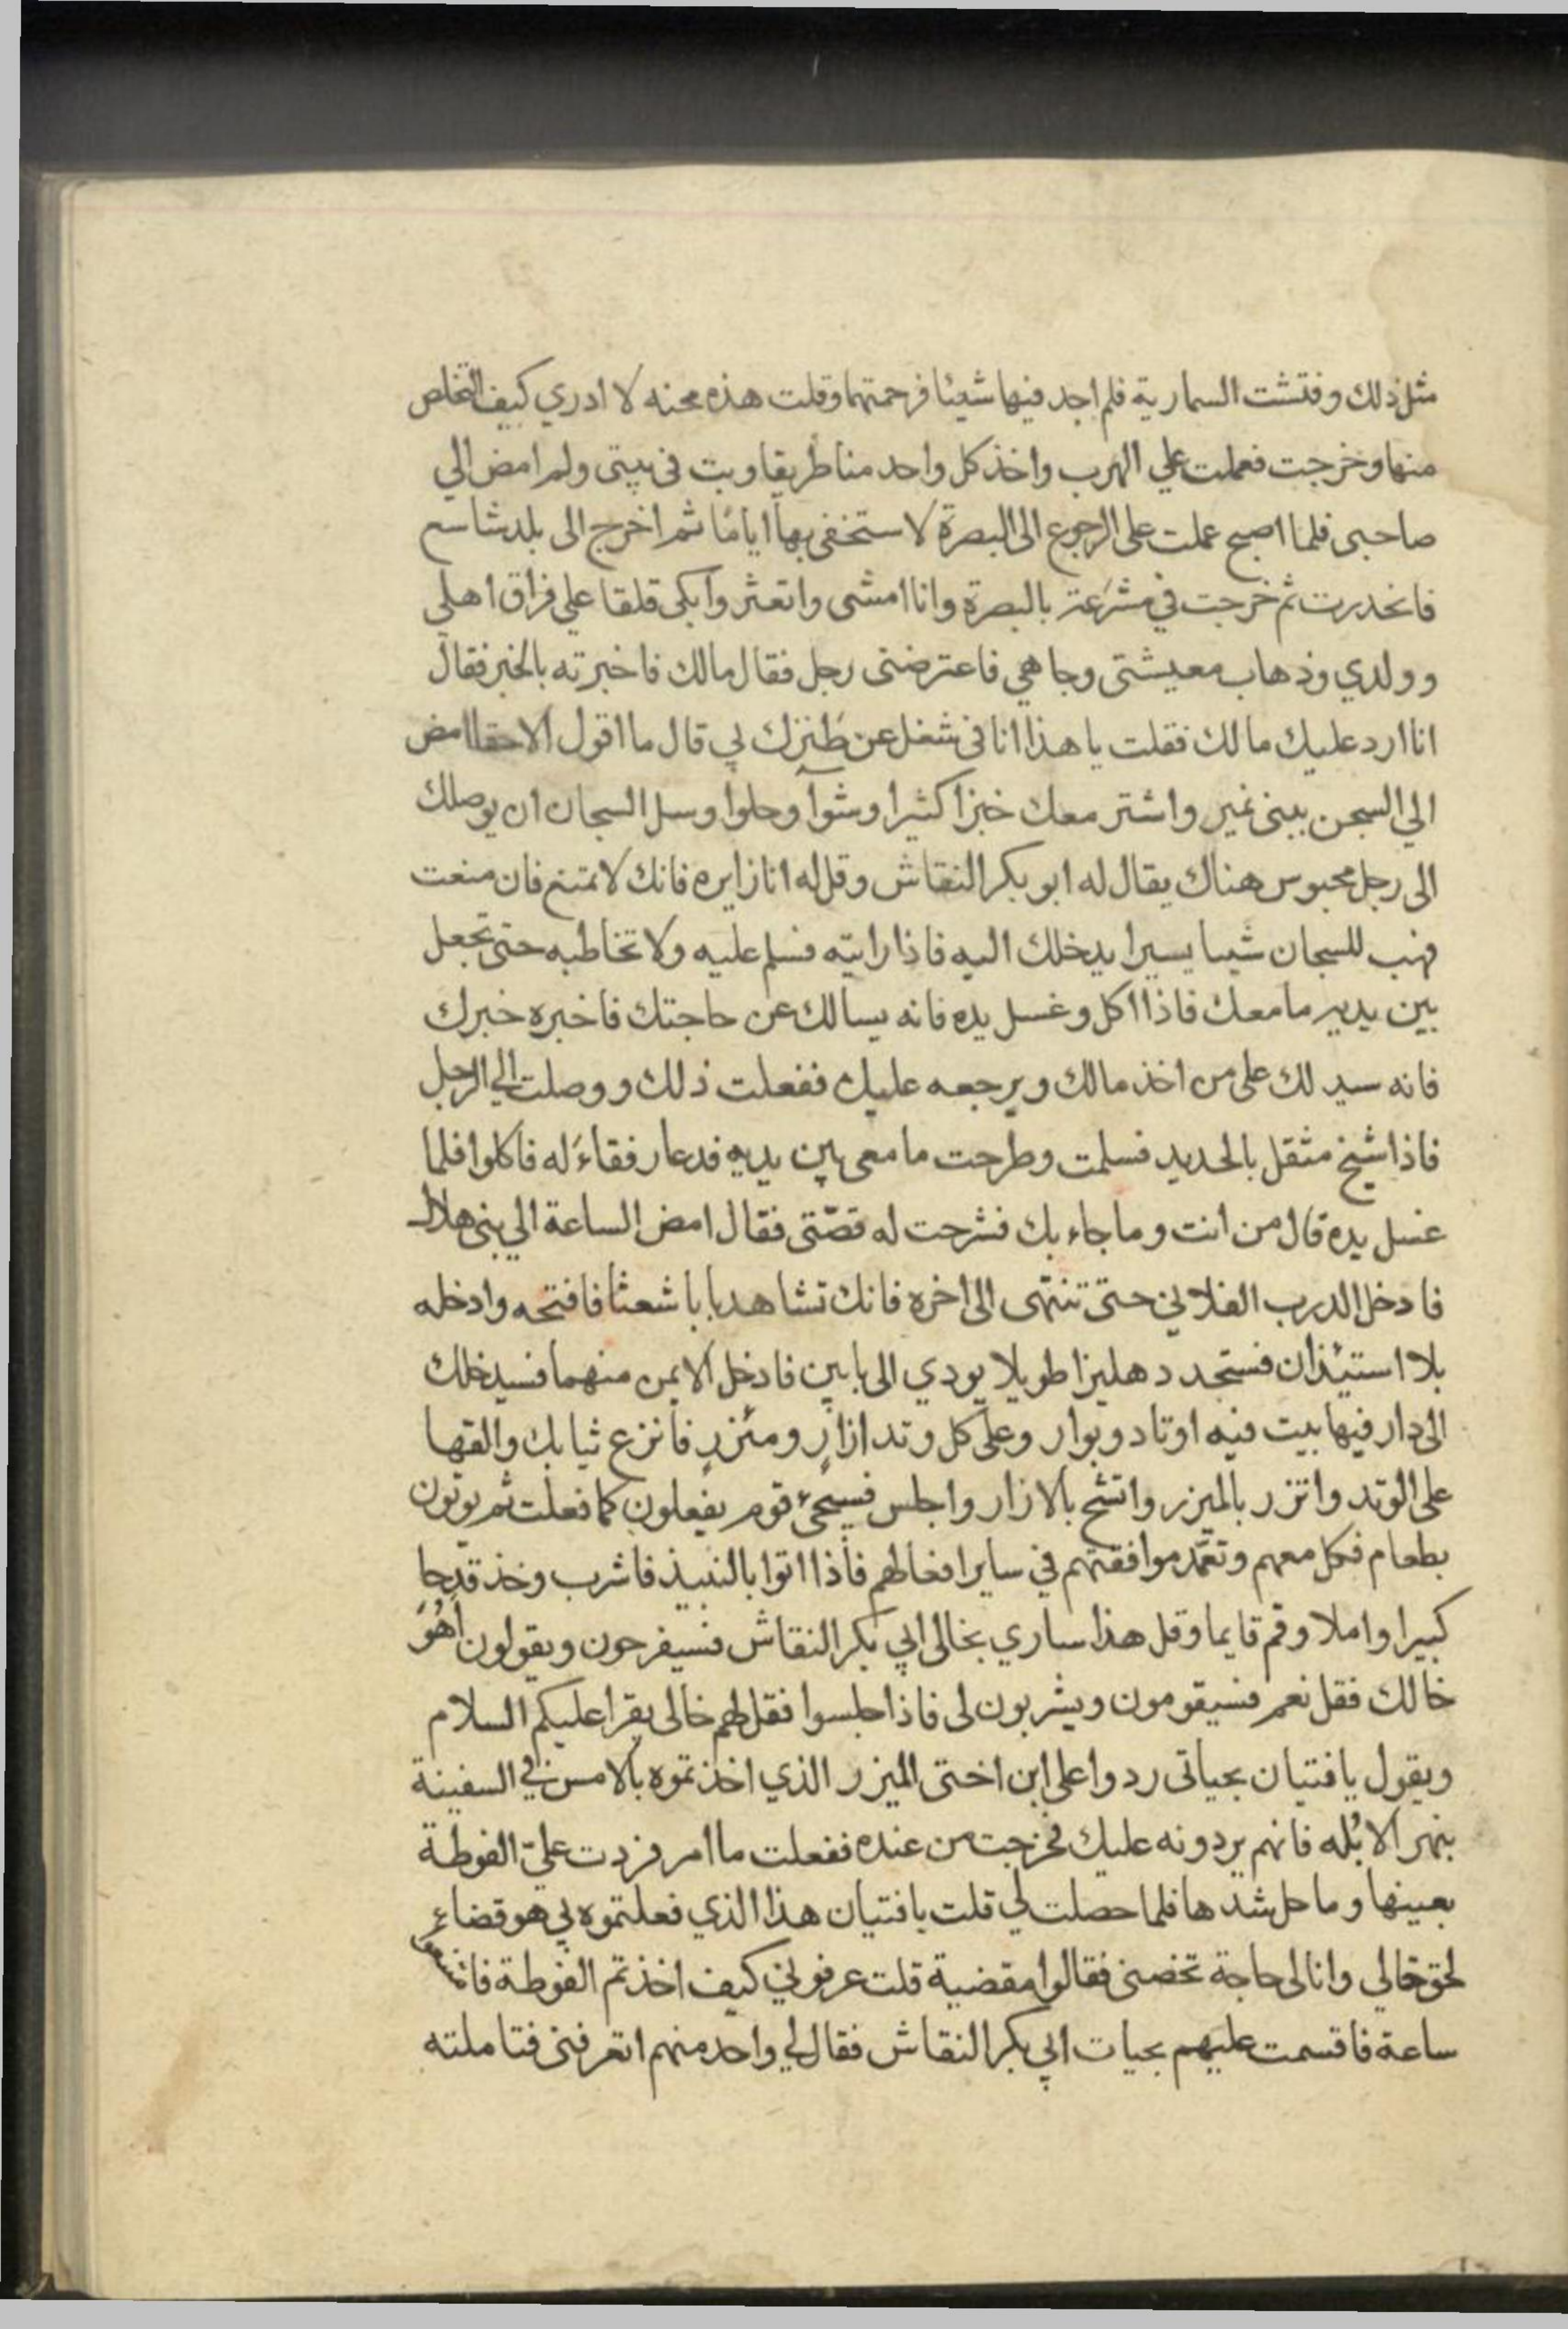 مثل ذلك وفتشت السمارية فلم اجد فيها شيئا فرحمتهما وقلت هذه محنه لا ادري كيف التخلص
منها وخرجت فعملت علي الهرب واخذ كل واحد منا طريقا وبت في بيتي ولم امض الي
صاحبي فلما اصبح عملت على الرجوع الى البصرة لاستخفى بها اياما ثم اخرج الى بلد شاسع
فانحدرت ثم خرجت في مشرعة بالبصرة وانا امشى واتعثر وابكى قلقا علي فراق اهلي
وولدي وذهاب معيشتى وجاهي فاعترضنى رجل فقال مالك فاخبرته بالخبر فقال
انا ارد عليك مالك فقلت يا هذا انا في شغل عن طنزك بي قال ما اقول الا حقا امض
الي السجن ببنى نمير واشتر معك خبزا كثيرا وشوآ وحلوا وسل السجان ان يوصلك
الى رجل محبوس هناك يقال له ابو بكر النقاش وقل له انا زايره فانك لا تمتنع فان منعت
فهب للسجان شيا يسيرا يدخلك اليه فاذا رايته فسلم عليه ولا تخاطبه حتى تجعل
بين يديه ما معك فاذا اكل وغسل يده فانه يسالك عن حاجتك فاخبره خبرك
فانه سيدلك على من اخذ مالك ويرجعه عليك ففعلت ذلك ووصلت الي الرجل
فاذا شيخ مثقل بالحديد فسلمت وطرحت ما معى بين يديه فدعا رفقاء له فاكلوا فلما
غسل يده قال من انت وما جاء بك فشرحت له قصّتى فقال امض الساعة الي بنى هلال
فادخل الدرب الفلاني حتى تنتهى الى اخره فانك تشاهد بابا شعثا فافتحه وادخله
بلا استيئذان فستجد دهليزا طويلا يودي الى بابين فادخل الايمن منهما فسيدخلك
الى دار فيها بيت فيه اوتاد وبوار وعلى كل وتد ازار ومئزر فانزع ثيابك والقها
على الوتد واتزر بالميزر واتشح بالازار واجلس فسيجئ قوم يفعلون كما فعلت ثم يوتون
بطعام فكل معهم وتعمّد موافقتهم في ساير افعالهم فاذا اتوا بالنبيذ فاشرب وخذ قدحا
كبيرا واملا وقم قايما وقل هذا ساري بخالى ابي بكر النقاش فسيفرحون ويقولون اهو
خالك فقل نعم فسيقومون ويشربون لى فاذا جلسوا فقل لهم خالى يقرا عليكم السلام
ويقول يا فتيان بحياتى ردوا على ابن اختى الميزر الذي اخذتموه بالامس في السفينة
بنهر الابله فانهم يردونه عليك فخرجت من عنده ففعلت ما امر فردت عليّ الفوطة
بعينها وما حل شدها فلما حصلت لي قلت يا فتيان هذا الذي فعلتموه بي هو قضاء
لحق خالي وانا لى حاجة تخصنى فقالوا مقضية قلت عرفوني كيف اخذتم الفوطة فامتنعوا
ساعة فاقسمت عليهم بحيات ابي بكر النقاش فقال لي واحد منهم اتعرفنى فتاملته